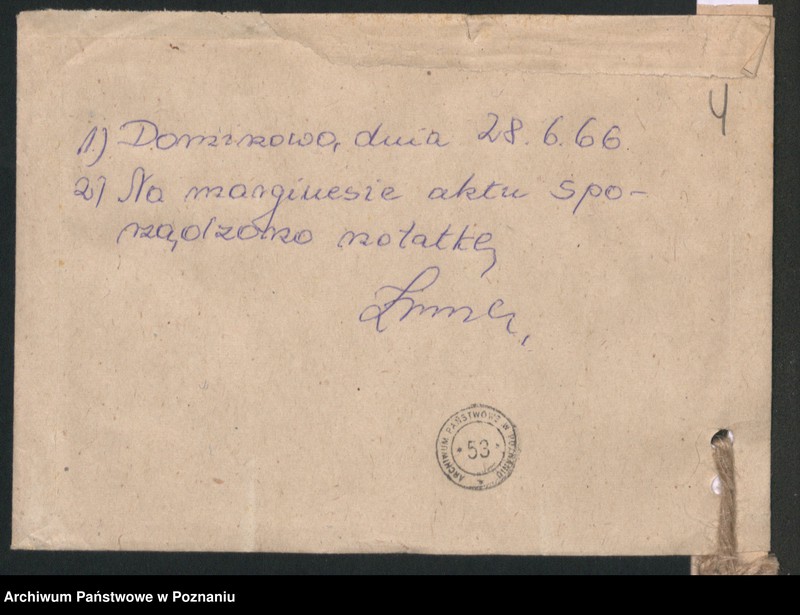 4
1) Dominowo, dnia 28.6.66.
2) Na marginesie aktu spo-
rządzono notatkę
ARCHIWUM PAŃSTWOWE W POZNANIU
53
Archiwum Państwowe w Poznaniu